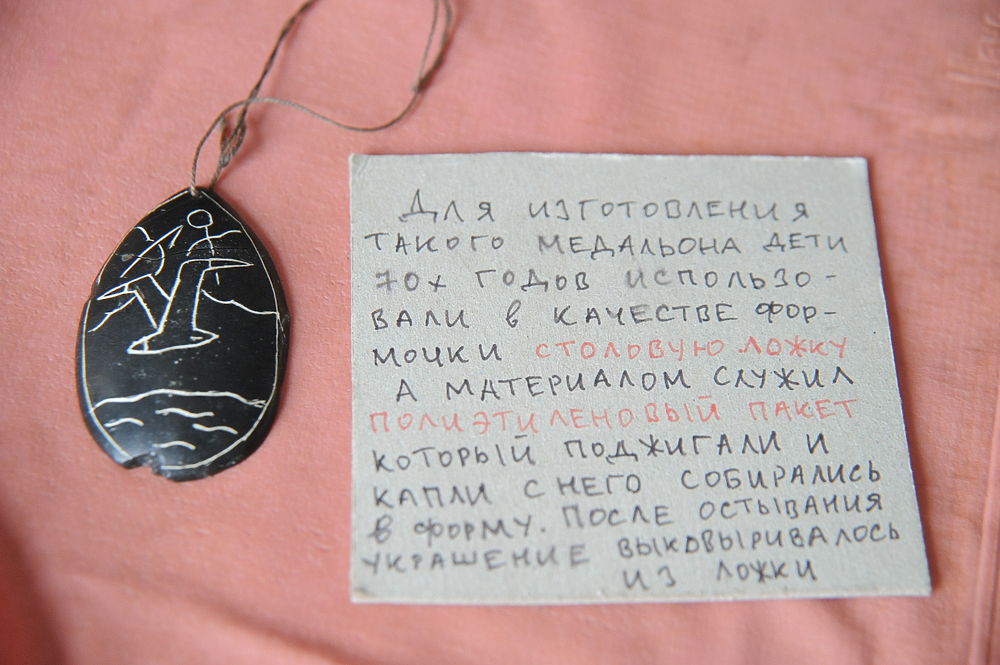 Для изготовления
такого медальона дети
70х годов использо-
вали в качестве фор-
мочки столовую ложку
а материалом служил
полиэтиленовый пакет
который поджигали и
капли с него собирались
в форму. После остывания
украшение выковыривалось
из ложки